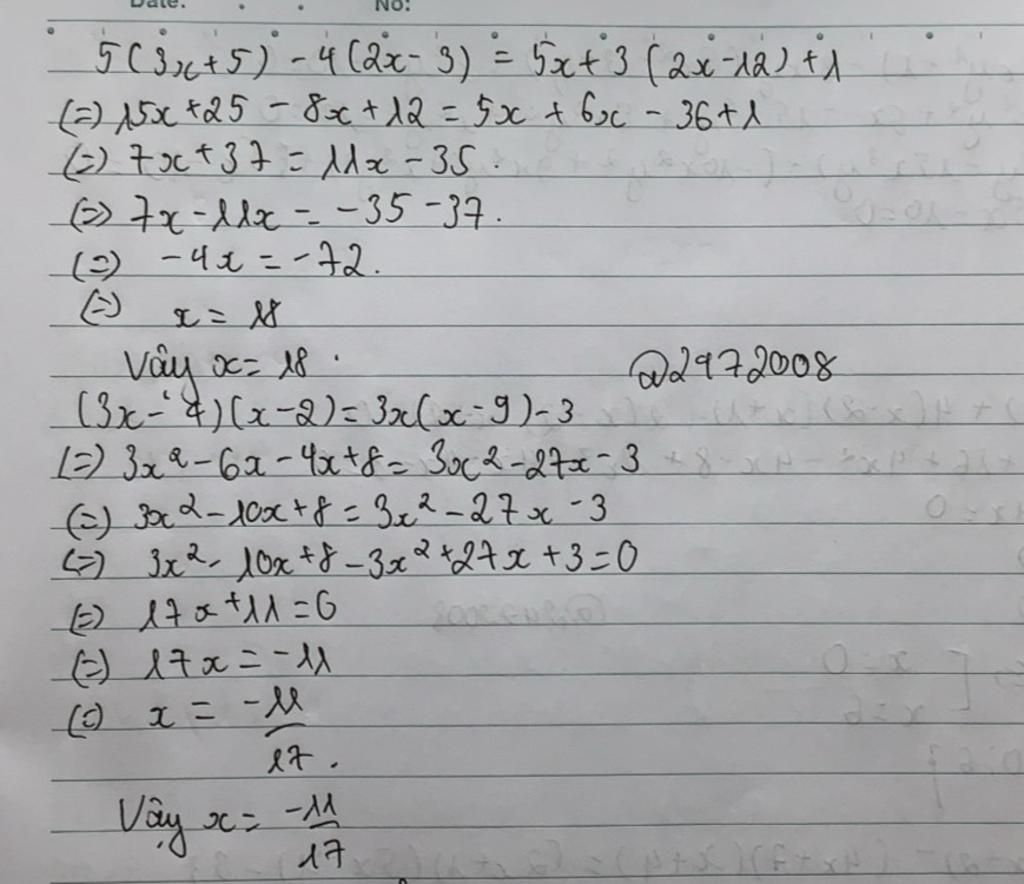 Date: No:
5(3x+5) -4(2x-3) = 5x+3(2x-12)+1
(=) 15x+25 - 8x+12 = 5x + 6x - 36+1
(=) 7x+37 = 11x - 35.
(=) 7x-11x = -35-37.
(=) -4x = -72.
(=) x = 18
Vây x= 18.
@2972008
(3x-4)(x-2)=3x(x-9)-3
(=) 3x²-6x-4x+8=3x²-27x-3
(=) 3x²-10x+8=3x²-27x-3
(=) 3x²-10x+8-3x²+27x+3=0
(=) 17x+11=0
(=) 17x=-11
(=) x = -11/17.
Vậy x= -11/17